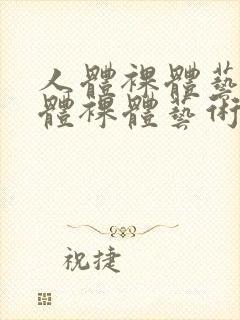 人體裸體藝
體裸體藝術
祝捷